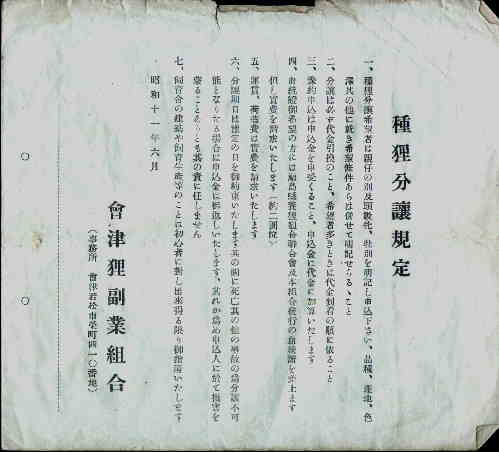 種狸分讓規定
一、種狸分讓希望者は親仔の別及頭數、性別を明記し申込下さい、品種、產地、色
澤其の他に就き希望條件あらば併せて明記せらるゝこと
二、分讓は必ず代金引換のこと、希望者多きときは代金到着の順に依ること
三、豫約申込は申込金を申受くること、申込金は代金に加算いたします
四、血統證御希望の方には福島縣養狸組合聯合會及本組合發行の血統證を差上ます
但し實費を請求いたします(約二圓位)
五、運賃、荷造費は實費を請求いたします
六、分讓期日は指定の日を御約束いたします其の間に死亡其の他の事故の爲分讓不可
能となりたる場合は申込金は御返しいたします、之れが爲め申込人に於て損害を
蒙ることありとも其の責に任しません
七、飼育舍の建築や飼育生產等のことは初心者に對し出來得る限り御指導いたします
昭和十一年六月
會津狸副業組合
(事務所 會津若松市榮町四一〇番地)